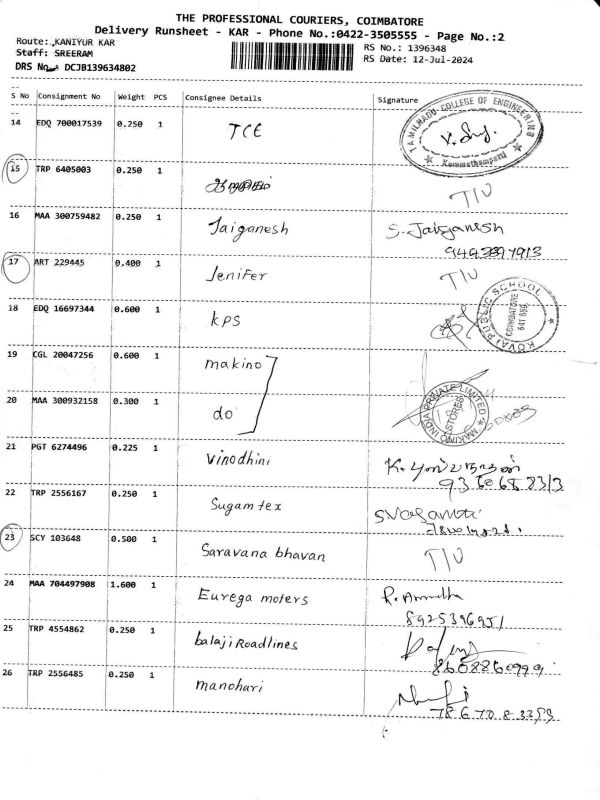 THE PROFESSIONAL COURIERS, COIMBATORE
Delivery Runsheet - KAR - Phone No.:0422-3505555 - Page No.:2
Route: KANIYUR KAR
RS No.: 1396348
Staff: SREERAM
RS Date: 12-Jul-2024
DRS No. DCJB139634802
S No Consignment No Weight PCS Consignee Details Signature
14 EDQ 700017539 0.250 1 TCE
TAMILNADU COLLEGE OF ENGINEERING
Karumathampatti
15 TRP 6405003 0.250 1 T/U
16 MAA 300759482 0.250 1 Jaiganesh S. Jaiganesh
17 ART 229445 0.400 1 Jenifer T/U
18 EDQ 16697344 0.600 1 KPS
KOVAI PUBLIC SCHOOL
COIMBATORE
641 659
19 CGL 20047256 0.600 1 makino
20 MAA 300932158 0.300 1 do
MAKINO INDIA PRIVATE LIMITED
STORES
21 PGT 6274496 0.225 1 Vinodhini
22 TRP 2556167 0.250 1 Sugam tex
23 SCY 103648 0.500 1 Saravana bhavan T/U
24 MAA 704497908 1.600 1 Eurega moters
8925396951
25 TRP 4554862 0.250 1 balaji Roadlines
8608860999
26 TRP 2556485 0.250 1 manohari